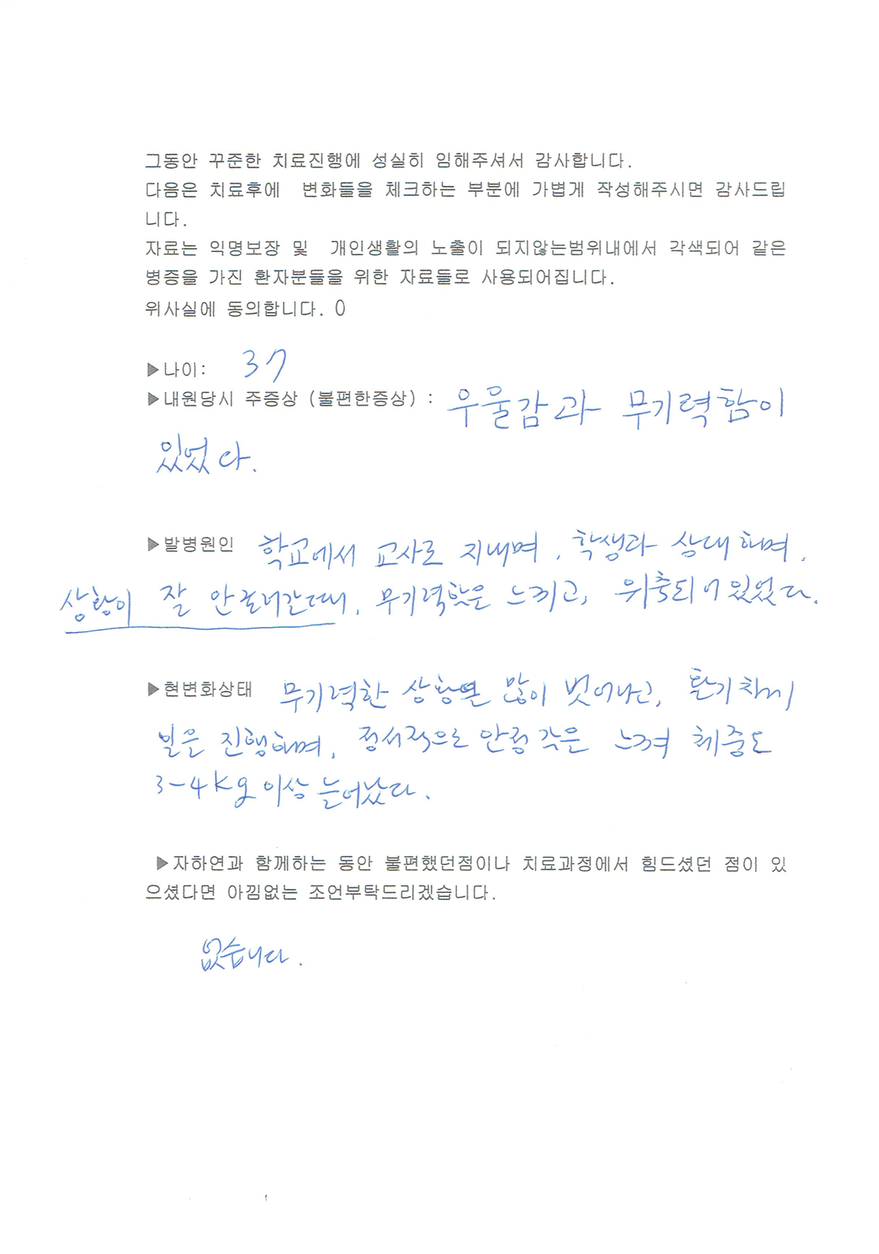 그동안 꾸준한 치료진행에 성실히 임해주셔서 감사합니다.
다음은 치료후에 변화들을 체크하는 부분에 가볍게 작성해주시면 감사드립
니다.
자료는 익명보장 및 개인생활의 노출이 되지않는범위내에서 각색되어 같은
병증을 가진 환자분들을 위한 자료들로 사용되어집니다.
위사실에 동의합니다. 0
▶나이: 37
▶내원당시 주증상 (불편한증상) : 우울감과 무기력함이
있었다.
▶발병원인 학교에서 교사로 지내며, 학생과 상대하며,
상황이 잘 안돌아간때, 무기력핫은 느끼고, 위축되어 있었다.
▶현변화상태 무기력한 상황엔 많이 벗어나고, 활기차게
일은 진행하며, 정서적으로 안정감은 느껴 체중도
3-4kg 이상 늘어났다.
▶자하연과 함께하는 동안 불편했던점이나 치료과정에서 힘드셨던 점이 있
으셨다면 아낌없는 조언부탁드리겠습니다.
없습니다.